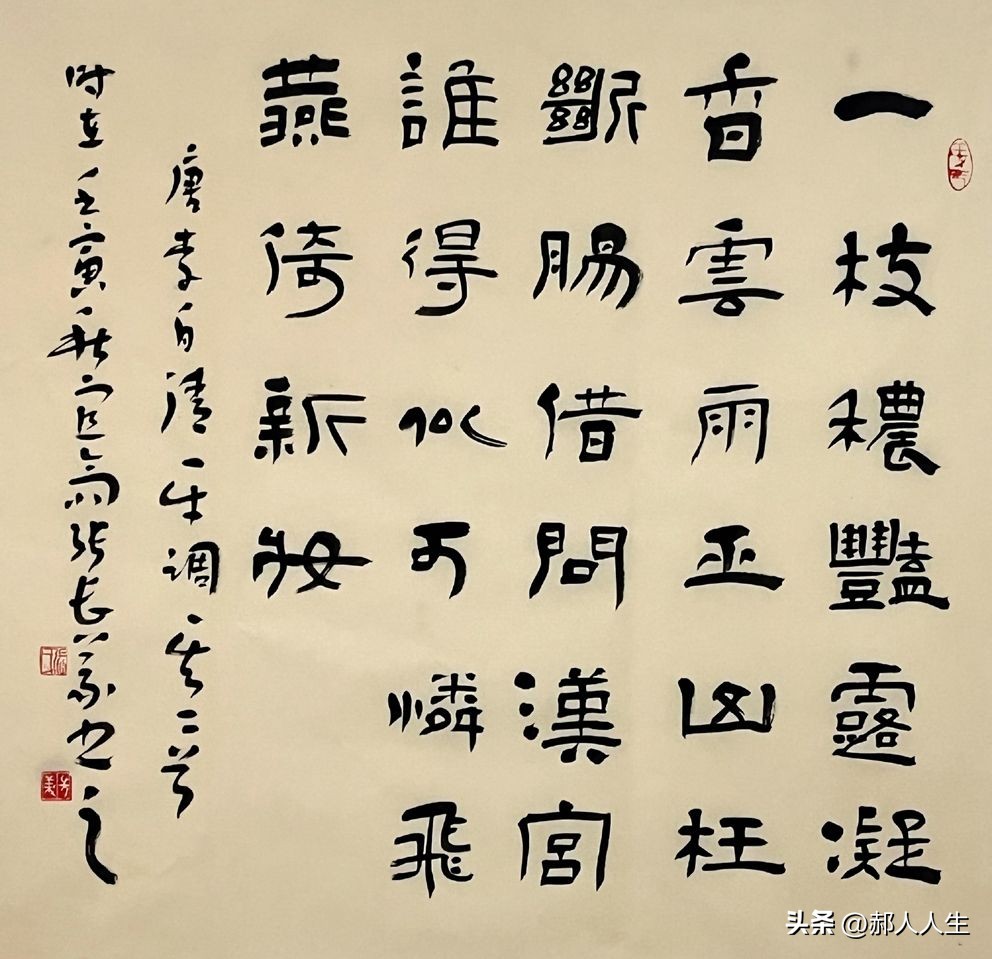 一枝穠豔露凝
香雲雨巫山枉
斷腸借問漢宮
誰得似可憐飛
燕倚新妝
唐李白清平調其二首
时在壬寅秋张长義书之
头条 @郝人人生